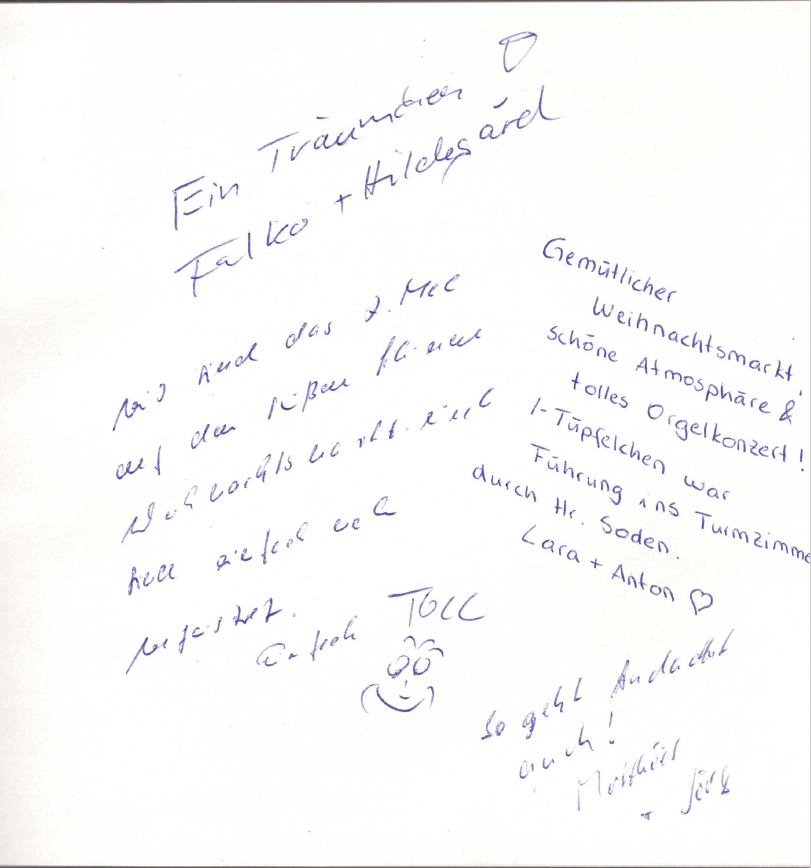 Ein Träumchen
Falko + Hildegard
Wir sind das 2. Mal
auf dem süßen kleinen
Weihnachtsmarkt und
sind einfach nur
begeistert.
Einfach TOLL
Gemütlicher
Weihnachtsmarkt,
schöne Atmosphäre &
tolles Orgelkonzert!
I-Tüpfelchen war
Führung ins Turmzimme
durch Hr. Soden.
Lara + Anton ♡
So geht Andacht
auch!
+